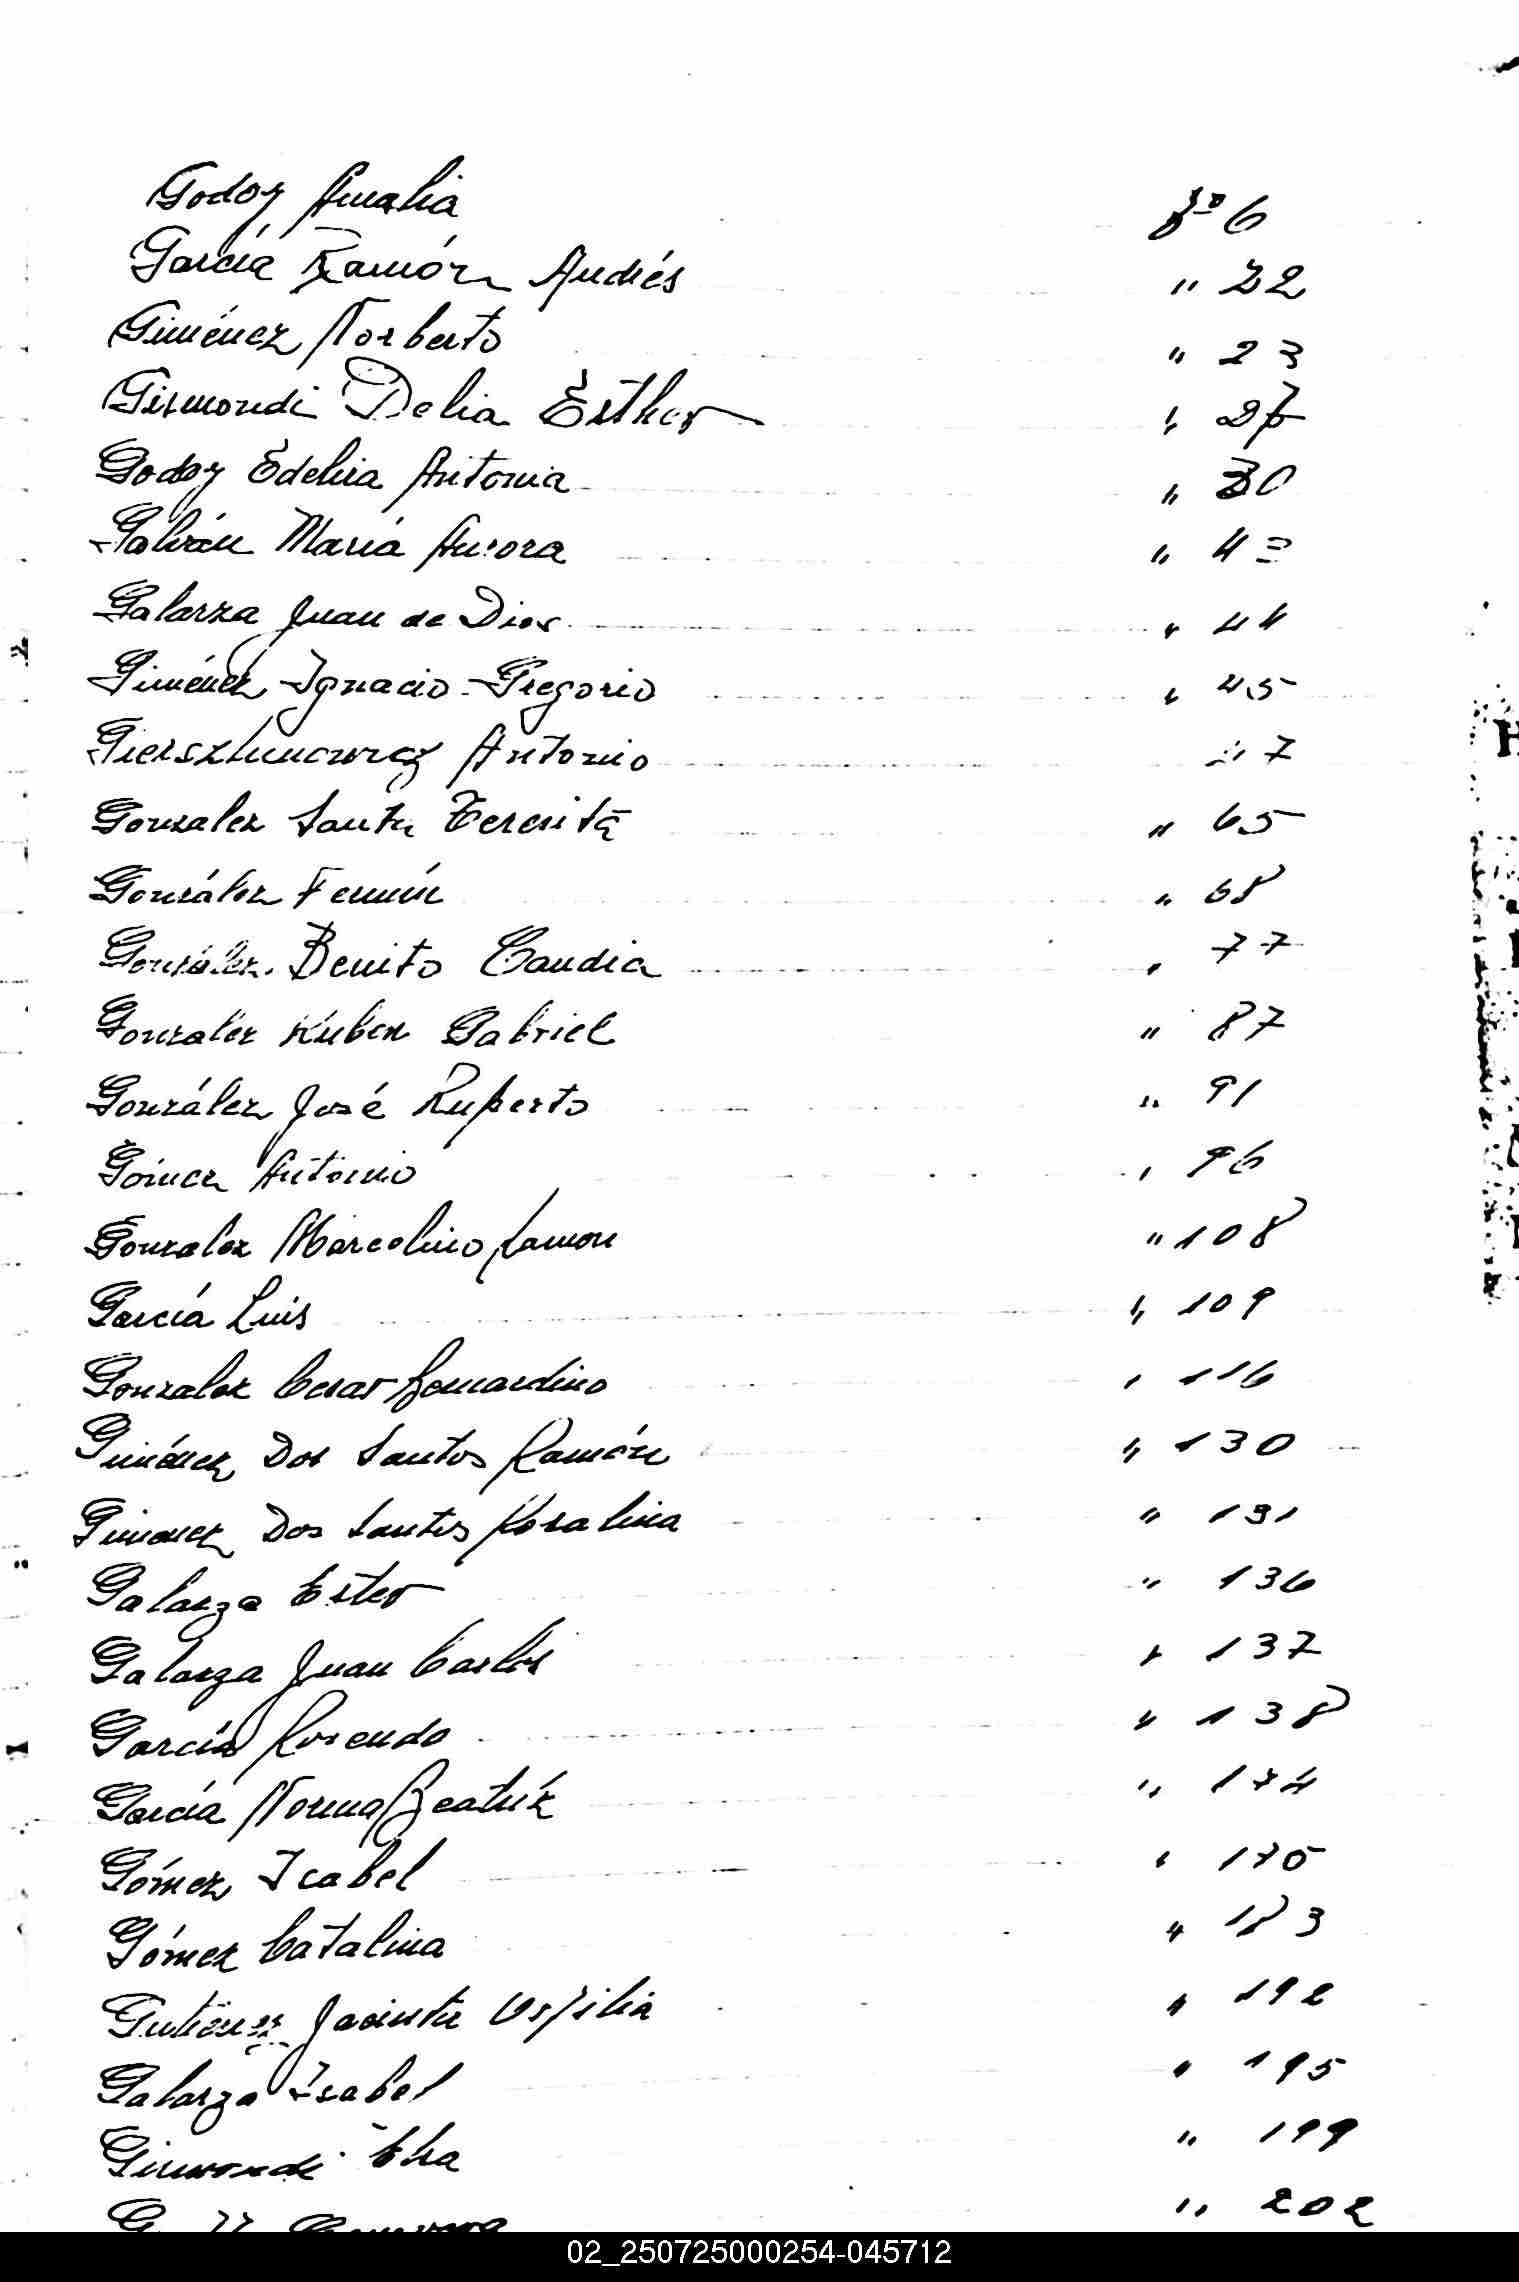 Godoy Amalia fº 6
García Ramón Andrés " 22
Giménez Norberto " 23
Gismondi Delia Esther " 26
Godoy Edelia Antonia " 30
Galván María Aurora " 43
Galarza Juan de Dios " 44
Giménez Ignacio Gregorio " 45
Antonio 47
Gonzalez Santa Teresita " 65
González Fermín " 68
González Benito Candia " 77
Gonzalez Ruben Gabriel " 87
González José Ruperto " 91
Gómez Antonio " 96
Gonzalez Marcelino Ramon " 108
García Luis " 109
Gonzalez Cesar Bernardino " 116
Giménez Dos Santos Ramón " 130
Gimenez Dos Santos Rosalina " 131
Galarza Ester " 136
Galarza Juan Carlos " 137
García Rosendo " 138
García Norma Beatriz " 174
Gómez Isabel " 175
Gómez Catalina " 183
Gutiérrez Jacinta " 192
Galarza Isabel " 195
Gismondi Elsa " 199
" 202
02_250725000254-045712